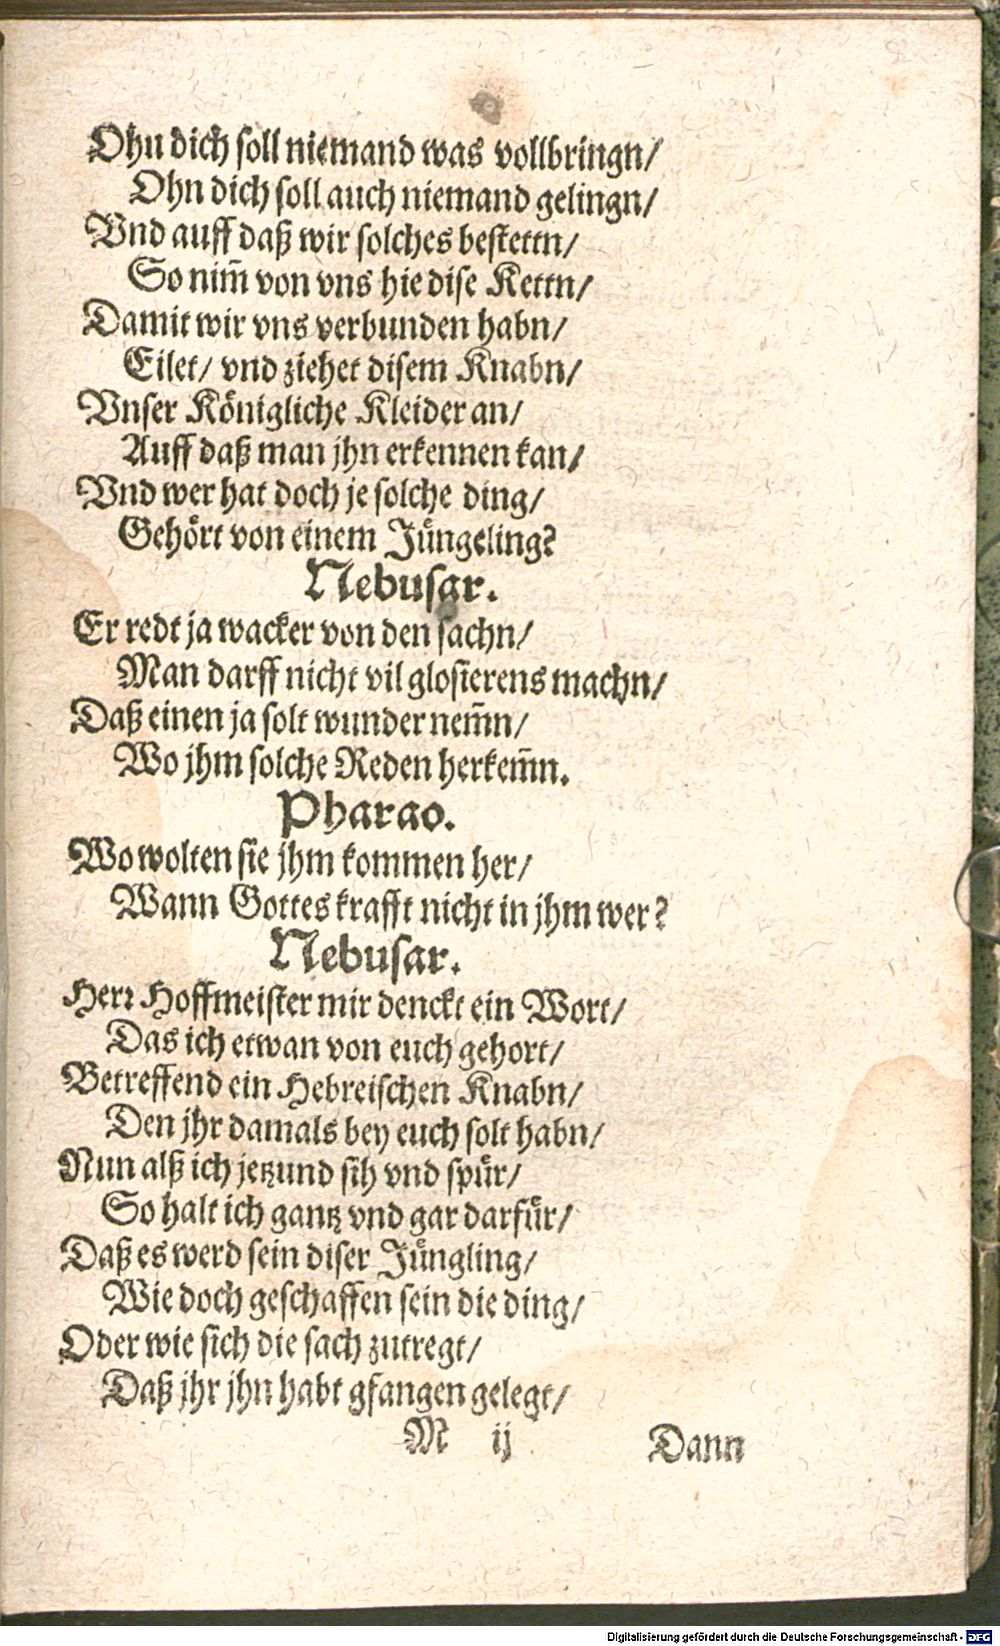 Ohn dich soll niemand was vollbringn/
Ohn dich soll auch niemand gelingn/
Vnd auff daß wir solches bestettn/
So nim̃ von vns hie dise Kettn/
Damit wir vns verbunden habn/
Eilet/ vnd ziehet disem Knabn/
Vnser Koͤnigliche Kleider an/
Auff daß man jhn erkennen kan/
Vnd wer hat doch je solche ding/
Gehoͤrt von einem Juͤngeling?
Nebusar.
Er redt ja wacker von den sachn/
Man darff nicht vil glosierens machn/
Daß einen ja solt wunder nem̃n/
Wo jhm solche Reden herkem̃n.
Pharao.
Wo wolten sie jhm kommen her/
Wann Gottes krafft nicht in jhm wer?
Nebusar.
Herr Hoffmeister mir denckt ein Wort/
Das ich etwan von euch gehort/
Betreffend ein Hebreischen Knabn/
Den jhr damals bey euch solt habn/
Nun alß ich jetzund sih vnd spuͤr/
So halt ich gantz vnd gar darfuͤr/
Daß es werd sein diser Juͤngling/
Wie doch geschaffen sein die ding/
Oder wie sich die sach zutregt/
Daß jhr jhn habt gfangen gelegt/
M ij Dann
Digitalisierung gefördert durch die Deutsche Forschungsgemeinschaft - DFG